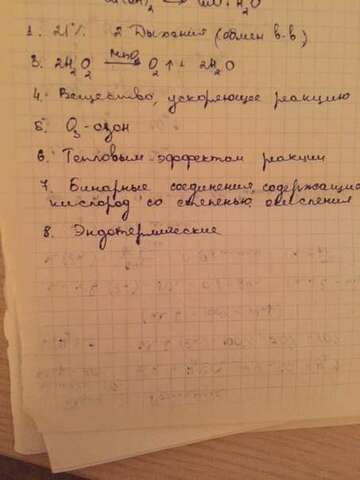 1. 21% 2 Дыхания (обмен в-в)
3. 2H₂O₂ MnO₂→ O₂↑ + 2H₂O
4. Вещество, ускоряющее реакцию
5. O₃-озон
6. Тепловым эффектом реакции
7. Бинарные соединения, содержащие
кислород со степенью окисления
8. Эндотермические